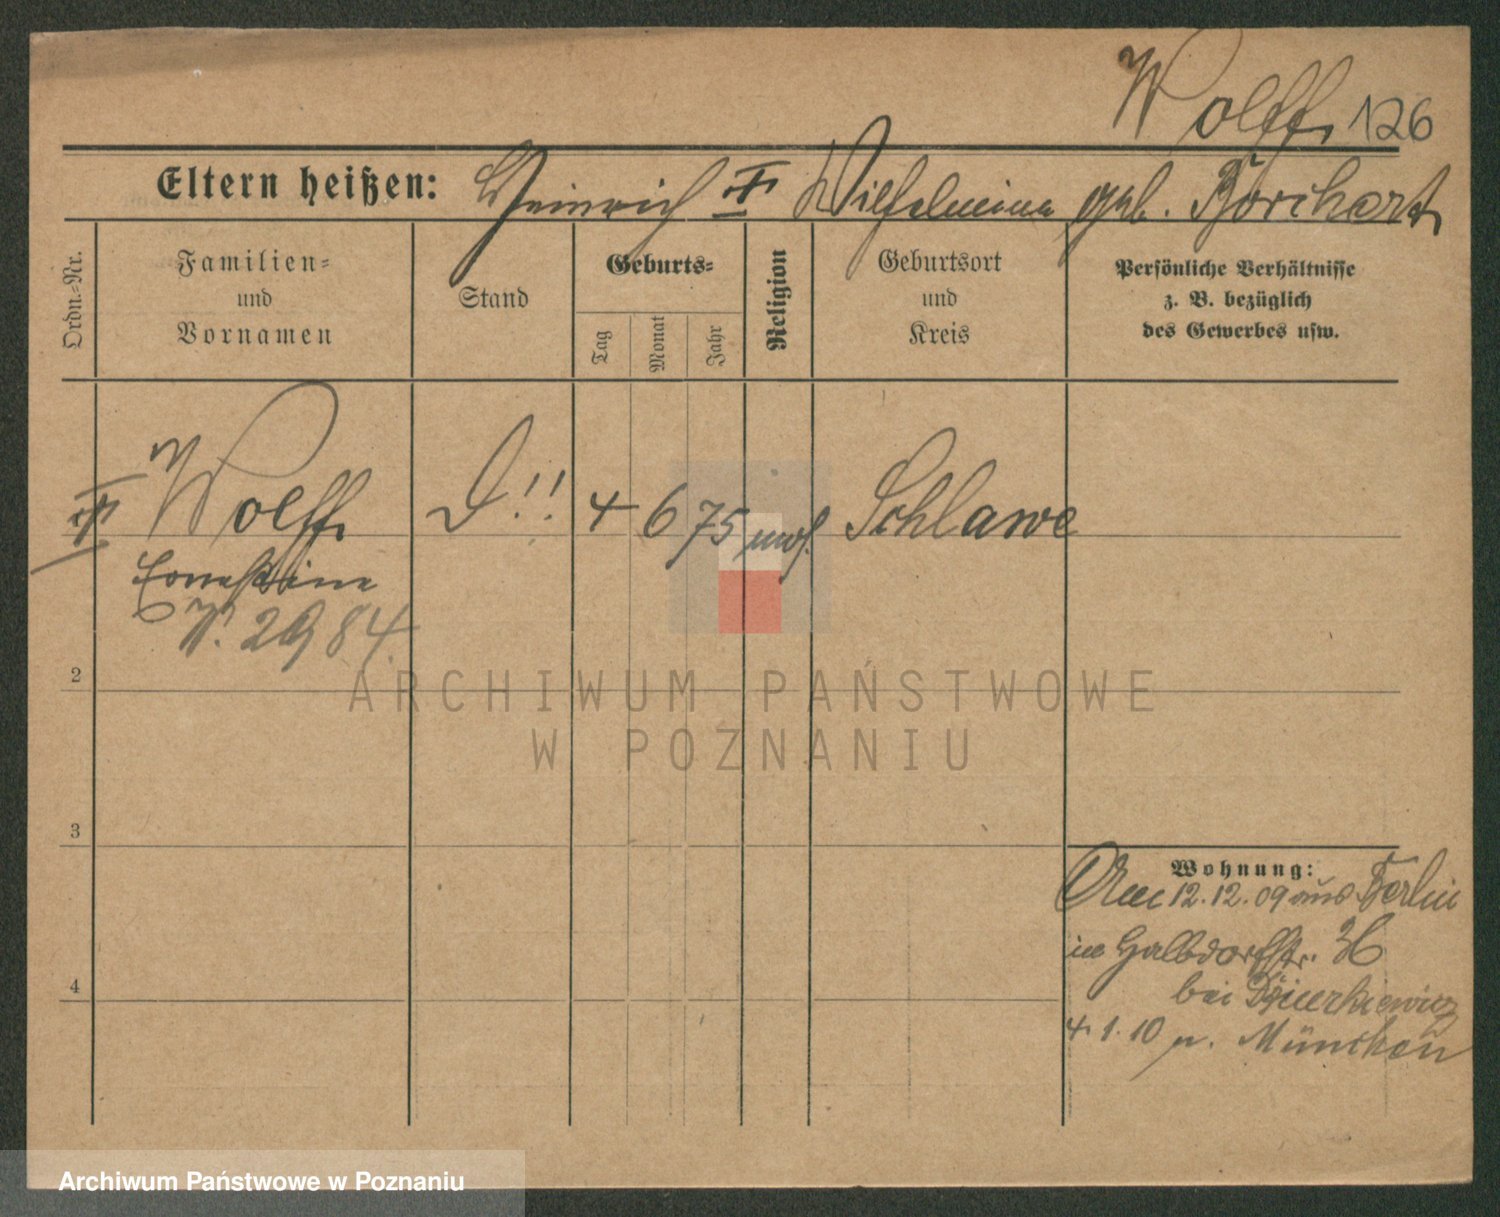 Wolff 126
Eltern heißen: Heinrich u. Wilhelmine geb. Borchart
Ordn.-Nr.
Familien-
und
Vornamen
Stand
Geburts-
Tag
Monat
Jahr
Religion
Geburtsort
und
Kreis
Persönliche Verhältnisse
z. B. bezüglich
des Gewerbes usw.
Wolff D!! 4 6 75 Schlawe
Ernestine
W. 2984.
2
ARCHIWUM PAŃSTWOWE
W POZNANIU
3
Wohnung:
12.12.09 aus Berlin
in Halbdorfstr. 36
bei
4
4.1.10 n. München
Archiwum Państwowe w Poznaniu